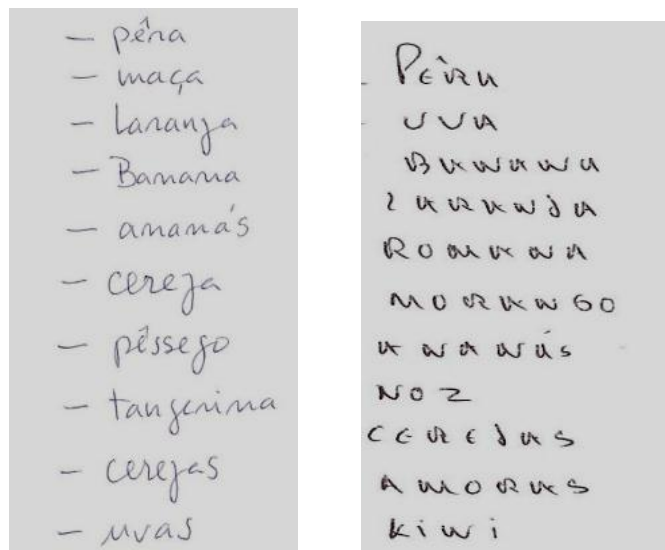 - pêra
- maça
- Laranja
- Banana
- ananás
- cereja
- pêssego
- tangerina
- cerejas
- uvas
- PÊRA
- UVA
BANANA
LARANJA
ROMANA
MORANGO
ANANÁS
NOZ
CEREJAS
AMORAS
KIWI